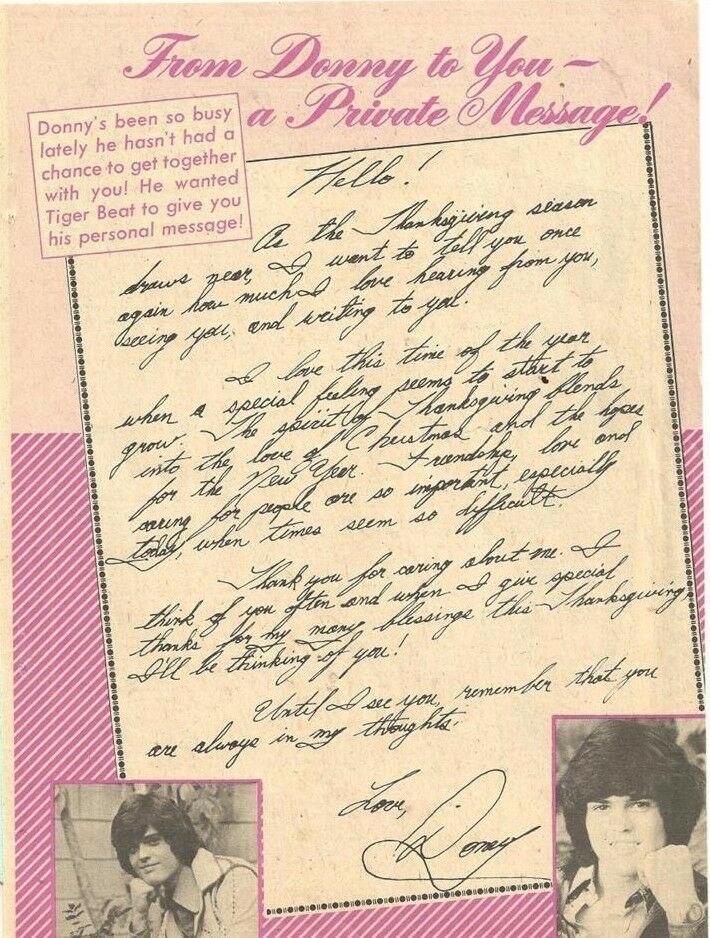 From Donny to You –
a Private Message!
Donny's been so busy
lately he hasn't had a
chance to get together
with you! He wanted
Tiger Beat to give you
his personal message!
Hello!
As the Thanksgiving season
draws near, I want to tell you once
again how much I love hearing from you,
seeing you, and writing to you.
I love this time of the year
when a special feeling seems to start to
grow. The spirit of Thanksgiving blends
into the love of Christmas and the hopes
for the New Year. Friendship, love and
caring for people are so important, especially
today, when times seem so difficult.
Thank you for caring about me. I
think of you often and when I give special
thanks for my many blessings this Thanksgiving,
I'll be thinking of you!
Until I see you, remember that you
are always in my thoughts.
Love,
Donny